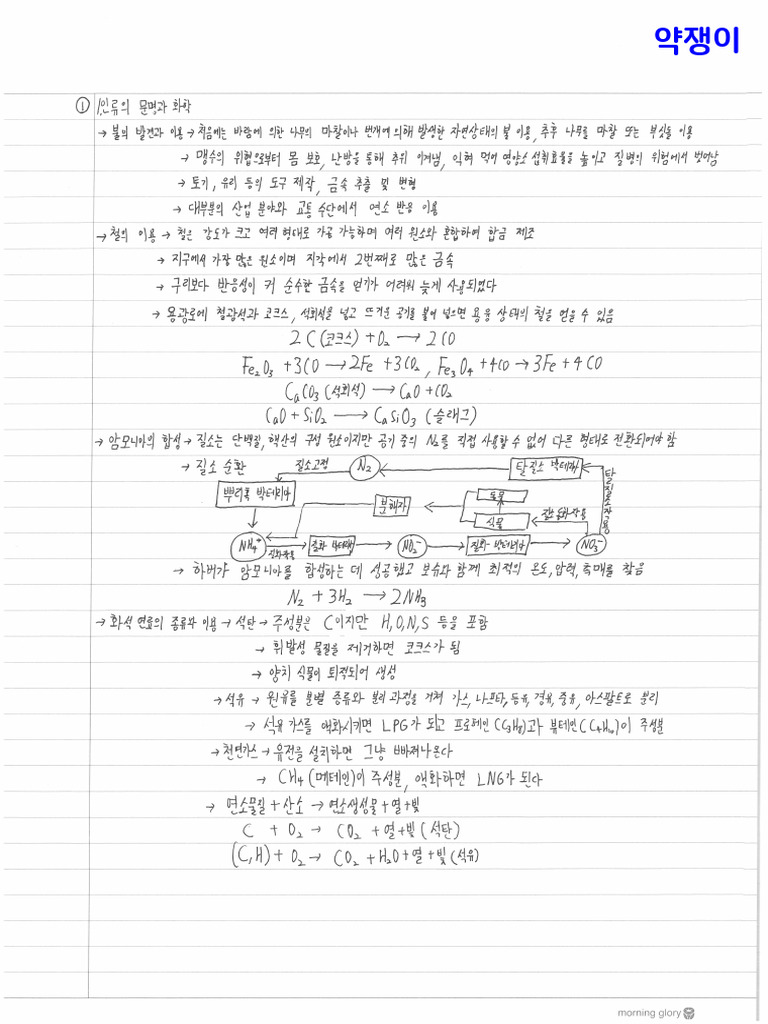 약쟁이
① 인류의 문명과 화학
→ 불의 발견과 이용 → 처음에는 바람에 의한 나무의 마찰이나 번개에 의해 발생한 자연상태의 불 이용, 추후 나무를 마찰 또는 부싯돌 이용
→ 맹수의 위협으로부터 몸 보호, 난방을 통해 추위 이겨냄, 익혀 먹어 영양소 섭취효율을 높이고 질병의 위험에서 벗어남
→ 토기, 유리 등의 도구 제작, 금속 추출 및 변형
→ 대부분의 산업 분야와 교통 수단에서 연소 반응 이용
→ 철의 이용 → 철은 강도가 크고 여러 형태로 가공 가능하며 여러 원소와 혼합하여 합금 제조
→ 지구에서 가장 많은 원소이며 지각에서 2번째로 많은 금속
→ 구리보다 반응성이 커 순수한 금속을 얻기가 어려워 늦게 사용되었다
→ 용광로에 철광석과 코크스, 석회석을 넣고 뜨거운 공기를 불어 넣으면 용융 상태의 철을 얻을 수 있음
2C(코크스) + O₂ → 2CO
Fe₂O₃ + 3CO → 2Fe + 3CO₂, Fe₃O₄ + 4CO → 3Fe + 4CO
CaCO₃ (석회석) → CaO + CO₂
CaO + SiO₂ → CaSiO₃ (슬래그)
→ 암모니아의 합성 → 질소는 단백질, 핵산의 구성 원소이지만 공기 중의 N₂를 직접 사용할 수 없어 다른 형태로 전환되어야 함
→ 질소 순환 질소고정 N₂ 탈질소 박테리아
뿌리혹 박테리아 분해자 동물 탈질소작용
식물 질소동화작용
NH₄⁺ 질화작용 질화 박테리아 NO₂⁻ 질화 박테리아 NO₃⁻
→ 하버가 암모니아를 합성하는 데 성공했고 보슈와 함께 최적의 온도, 압력, 촉매를 찾음
N₂ + 3H₂ → 2NH₃
→ 화석 연료의 종류와 이용 → 석탄 → 주성분은 C이지만 H, O, N, S 등을 포함
→ 휘발성 물질을 제거하면 코크스가 됨
→ 양치 식물이 퇴적되어 생성
→ 석유 → 원유를 분별 증류와 분리 과정을 거쳐 가스, 나프타, 등유, 경유, 중유, 아스팔트로 분리
→ 석유 가스를 액화시키면 LPG가 되고 프로페인(C₃H₈)과 뷰테인(C₄H₁₀)이 주성분
→ 천연가스 → 유전을 설치하면 그냥 빠져나온다
→ CH₄ (메테인)이 주성분, 액화하면 LNG가 된다
→ 연소물질 + 산소 → 연소생성물 + 열 + 빛
C + O₂ → CO₂ + 열 + 빛 (석탄)
(C,H) + O₂ → CO₂ + H₂O + 열 + 빛 (석유)
morning glory